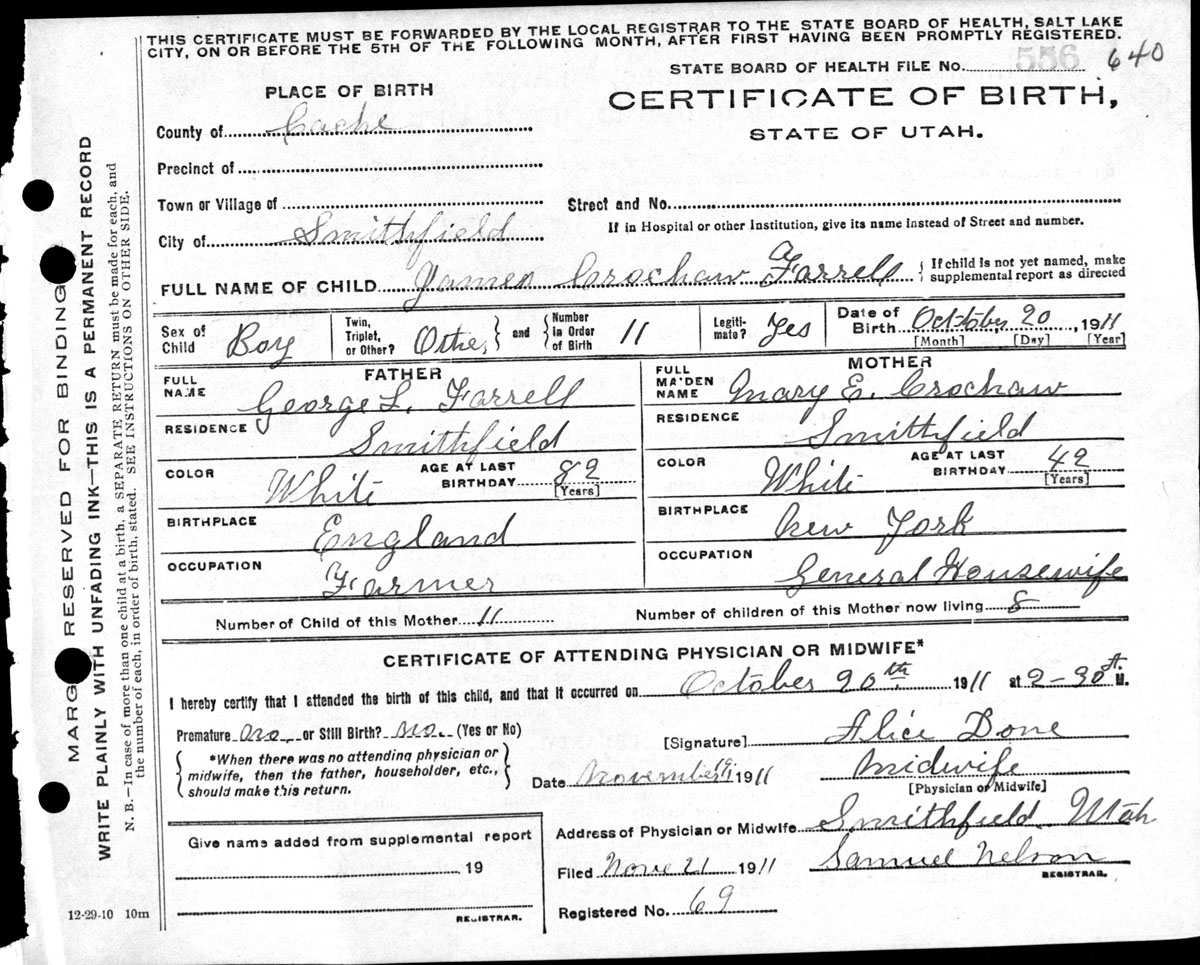 THIS CERTIFICATE MUST BE FORWARDED BY THE LOCAL REGISTRAR TO THE STATE BOARD OF HEALTH, SALT LAKE
CITY, ON OR BEFORE THE 5TH OF THE FOLLOWING MONTH, AFTER FIRST HAVING BEEN PROMPTLY REGISTERED.
STATE BOARD OF HEALTH FILE No. 556 640
PLACE OF BIRTH
CERTIFICATE OF BIRTH,
STATE OF UTAH.
County of Cache
Precinct of
Town or Village of
Street and No.
City of Smithfield
If in Hospital or other Institution, give its name instead of Street and number.
FULL NAME OF CHILD James Crochaw Farrell { If child is not yet named, make
supplemental report as directed
a
Sex of Child Boy
Twin, Triplet, or Other? Other } and { Number in Order of Birth 11
Legiti-mate? Yes
Date of Birth October 20, 1911
[Month] [Day] [Year]
FATHER
FULL NAME George L. Farrell
RESIDENCE Smithfield
COLOR White
AGE AT LAST BIRTHDAY 82
[Years]
BIRTHPLACE England
OCCUPATION Farmer
MOTHER
FULL MAIDEN NAME Mary E. Crochaw
RESIDENCE Smithfield
COLOR White
AGE AT LAST BIRTHDAY 42
[Years]
BIRTHPLACE New York
OCCUPATION General Housewife
Number of Child of this Mother 11
Number of children of this Mother now living 8
CERTIFICATE OF ATTENDING PHYSICIAN OR MIDWIFE*
I hereby certify that I attended the birth of this child, and that it occurred on October 20th 1911 at 2-30 A. M.
Premature no or Still Birth? no. (Yes or No)
{ *When there was no attending physician or
midwife, then the father, householder, etc.,
should make this return. }
[Signature] Alice Done
Date November 19 1911
Midwife
[Physician or Midwife]
Address of Physician or Midwife Smithfield Utah
Give name added from supplemental report
19
REGISTRAR.
Filed Nove 21 1911
Samuel Nelson
REGISTRAR.
Registered No. 69
12-29-10 10m
MARG RESERVED FOR BINDING
WRITE PLAINLY WITH UNFADING INK—THIS IS A PERMANENT RECORD
N. B.—In case of more than one child at a birth, a SEPARATE RETURN must be made for each, and
the number of each, in order of birth, stated. SEE INSTRUCTIONS ON OTHER SIDE.